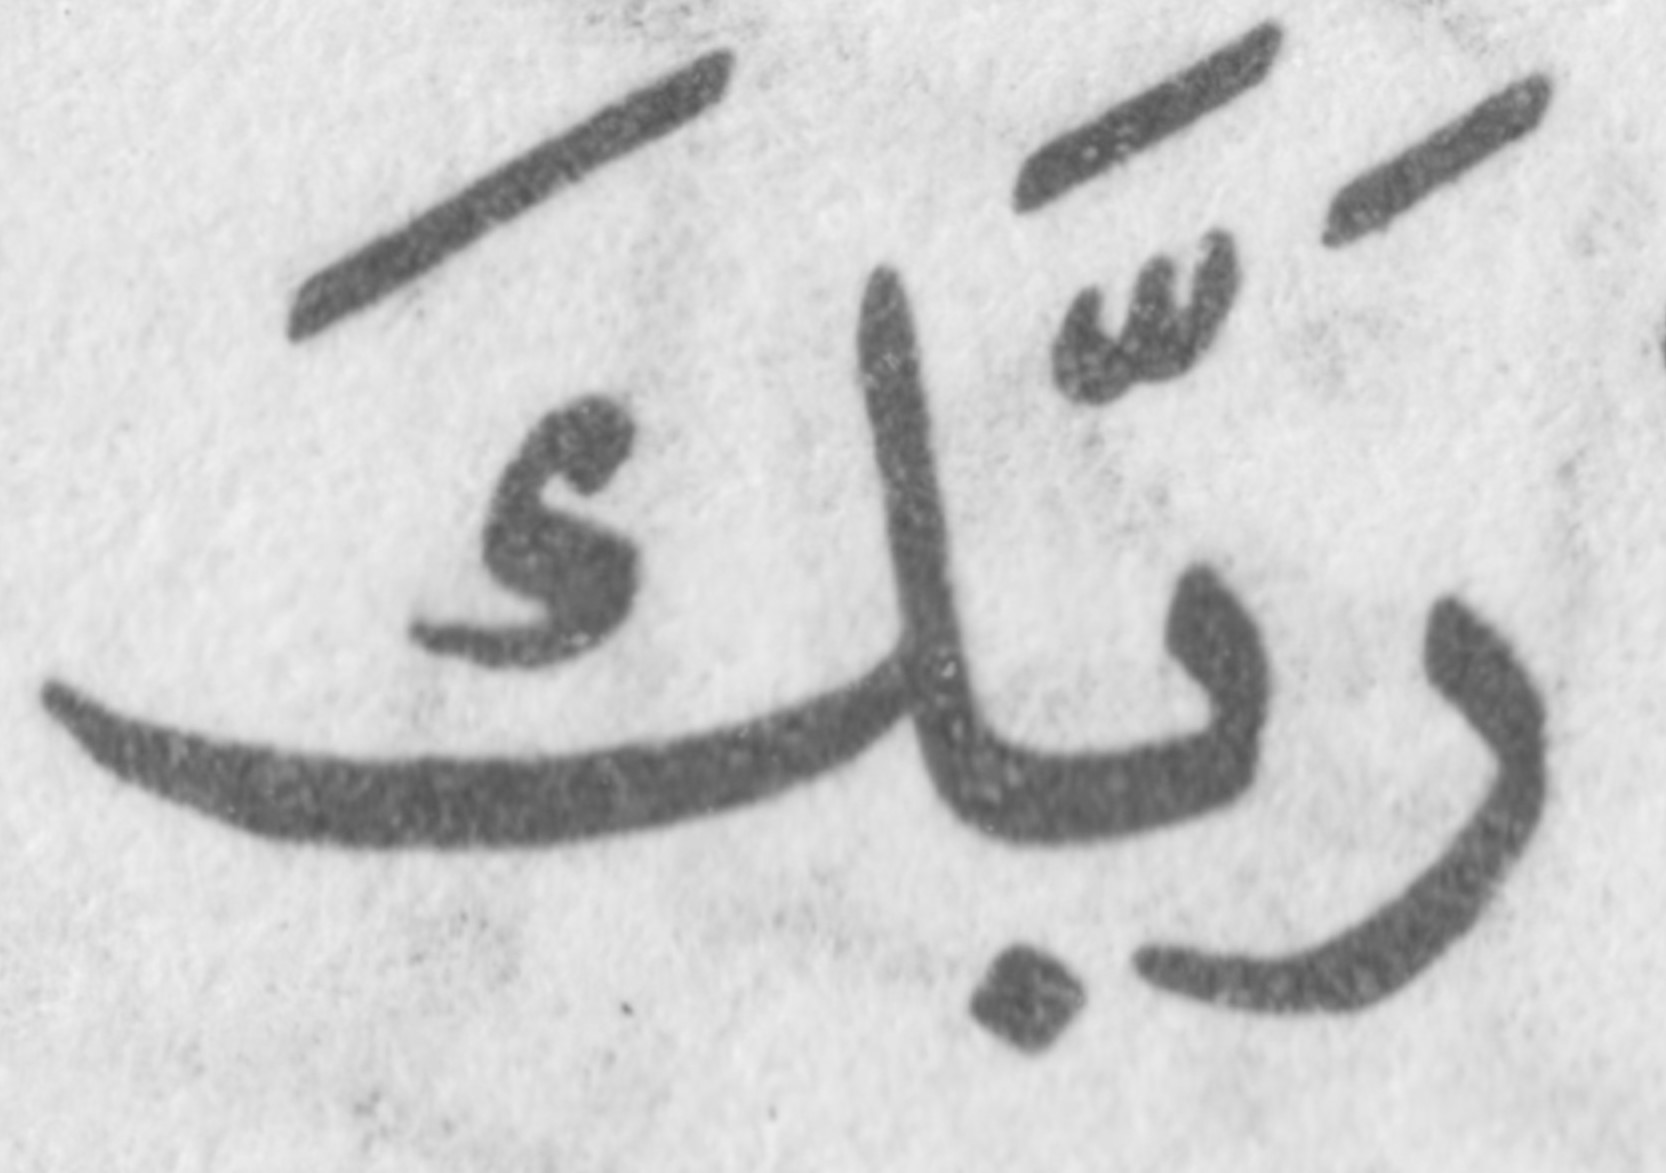 رَبَّكَ